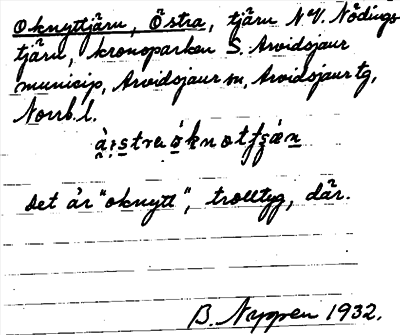 Oknyttjärn, Östra, tjärn N.V. Nödings-
tjärn, kronoparken S. Arvidsjaur
municip, Arvidsjaur sn, Arvidsjaur tg,
Norrb.l.
Det är "oknytt", trolltyg, där.
B. Nyppen 1932.